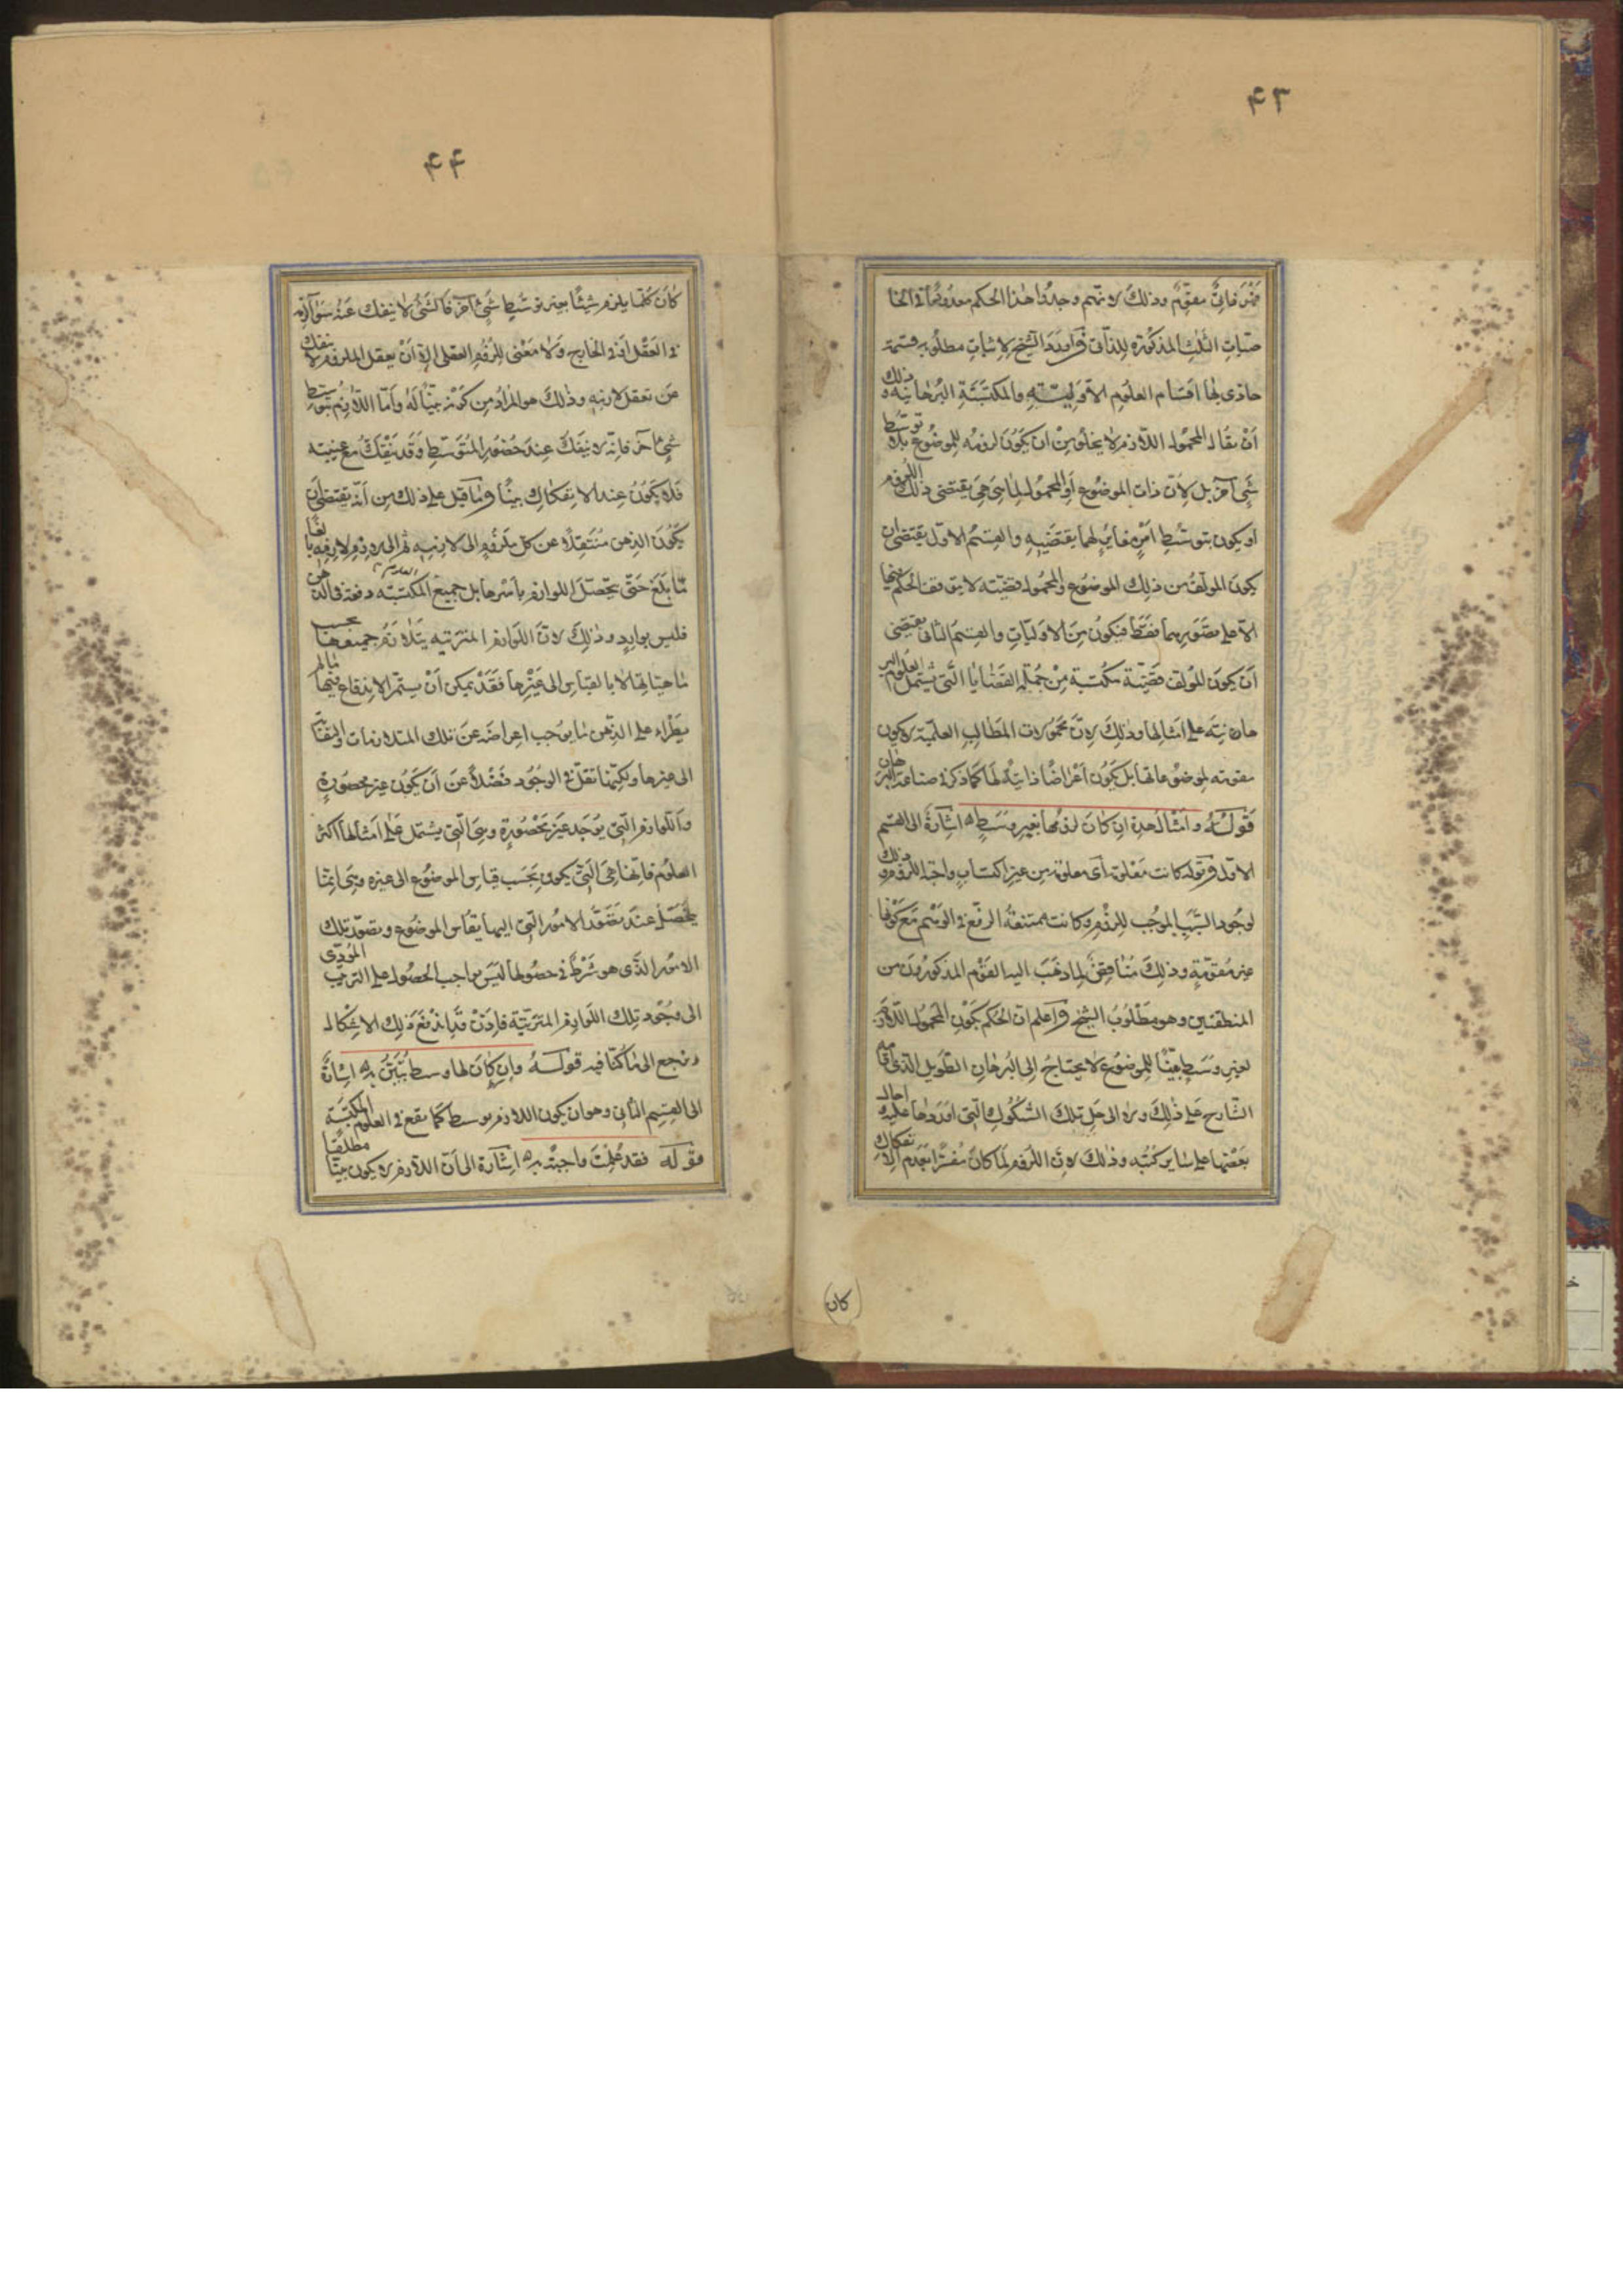 ۴۳
فهو ذاتى مقوّم وذلك لانهم وجدوا هذا الحكم معدودًا فى الخا
صيّات الثلث المذكورة للذاتى وَاورد الشيخ لاثبات مطلوبه قسمة
حاذى بها اقسام العلوم الاوّليّة والمكتسبة البرهانية وذلك
اَنْ يقال المحمول اللازم لا يخلو من ان يكون لزومه للموضوع بلا توسّط
شىء آخر بل لانّ ذات الموضوع اَو المحمول لما هى هى يقتضى ذلك اللزوم
او يكون بتوسّط امر مغاير لهما يقتضيه والقسم الاوّل يقتضى ان
يكون المولّف من ذلك الموضوع والمحمول قضيّة لا يتوقف الحكم فيها
الّا على تصوّرهما فقط فيكون من الاوّليات والقسم الثانى يقتضى
اَن يكون المولّف قضيّة مكتسبة من جملة القضايا التى يشتمل العلوم البر
هانيّة على امثالها وذلك لانّ محمولات المطالب العلميّة لا يكون
مقوّمة لموضوعاتها بل يكون اَعْراضًا ذاتيّة لها كما ذكر فى صناعة البرهان
قوله وامثال هذه ان كان لزومها بغير وسط ه اشارة الى القسم
الاوّل وقوله كانت معلومة اَى معلومة من غير اكتساب واجبة اللزوم وذلك
لوجُود السّبب الموجب للزوم وكانت ممتنعة الرفع فى الوهم مع كونها
غير مقوّمة وذلك مُناقض لما ذهب اليه القوم المذكورون من
المنطقيين وهو مطلوب الشيخ وَاعلم انّ الحكم بكون المحمول اللازم
بغير وسط بيّنًا للموضوع لا يحتاج الى البرهان الطويل الذى اقامه
الشارح على ذلك ولا الى حلّ تلك الشكوك التى اَورَدها عليه احال
بعضها على ساير كتبه وذلك لانّ اللزوم لما كان مُفسّرًا بعدم الانفكاك
(كان)
۴۴
كان كلّما يلزم شيئًا بغير توسّط شىء آخر فالشىء لا ينفك عنه سواء
فى العقل اَو فى الخارج ولا معنى للزوم العقلى الّا اَنْ يعقل الملزوم لا ينفك
عن تعقل لازمه وذلك هو المراد من كونه بيّنًا له واَمّا اللازم بتوسّط
شىء آخر فانّه لا ينفكّ عند حضور المتوسّط وَقد ينفكّ مع غيبته
فلا يكون عند الانفكاك بيّنًا وما قيل على ذلك من اَنّه يقتضى ان
يكون الذهن مُنتقلًا عن كل ملزوم الى لازمه ثم الى لازم لازمه بالغًا
ما بلغ حتّى يحصّل اللوازم باَسْرها بل جميع العلوم المكتسبة دفعة فى الذهن
فليس بوارد وذلك لانّ اللوازم المترتبة يتلازم جميعها بحسب
ماهيّاتها لا بالقياس الى غيرها فقد يمكن اَنْ يستمرّ الاندفاع فيها ما لم
يطراء على الذهن ما يوجب اعراضه عن تلك المتلازمات والتفاتًا
الى غيرها ولكنّها تقلّ فى الوجود فضلًا عن اَن يكون غير محصورة
واللوازم التى يوجد غير محصورة وهى التى يشتمل على امثالها اكثر
العلوم فانّها هى التى يكون بحسب قياس الموضوع الى غيره وهى انّما
يحصل عند تصوّر الامور التى اليها يقاس الموضوع وتصوّر تلك
الامور الذى هو شرط فى حصولها ليس بواجب الحصول على الترتيب المُودّى
الى وجود تلك اللوازم المترتبة فاِذن قد اندفع ذلك الاشكال
ونرجع الى ما كنّا فيه قوله وان كان لها وسط يتبيّن به ه اشارة
الى القسم الثانى وهو ان يكون اللازم بوسط كما يقع فى العلوم المكتسبة
قوله فقد علمت واجبة به ه اشارة الى انّ اللازم لا يكون بيّنًا مطلقًا